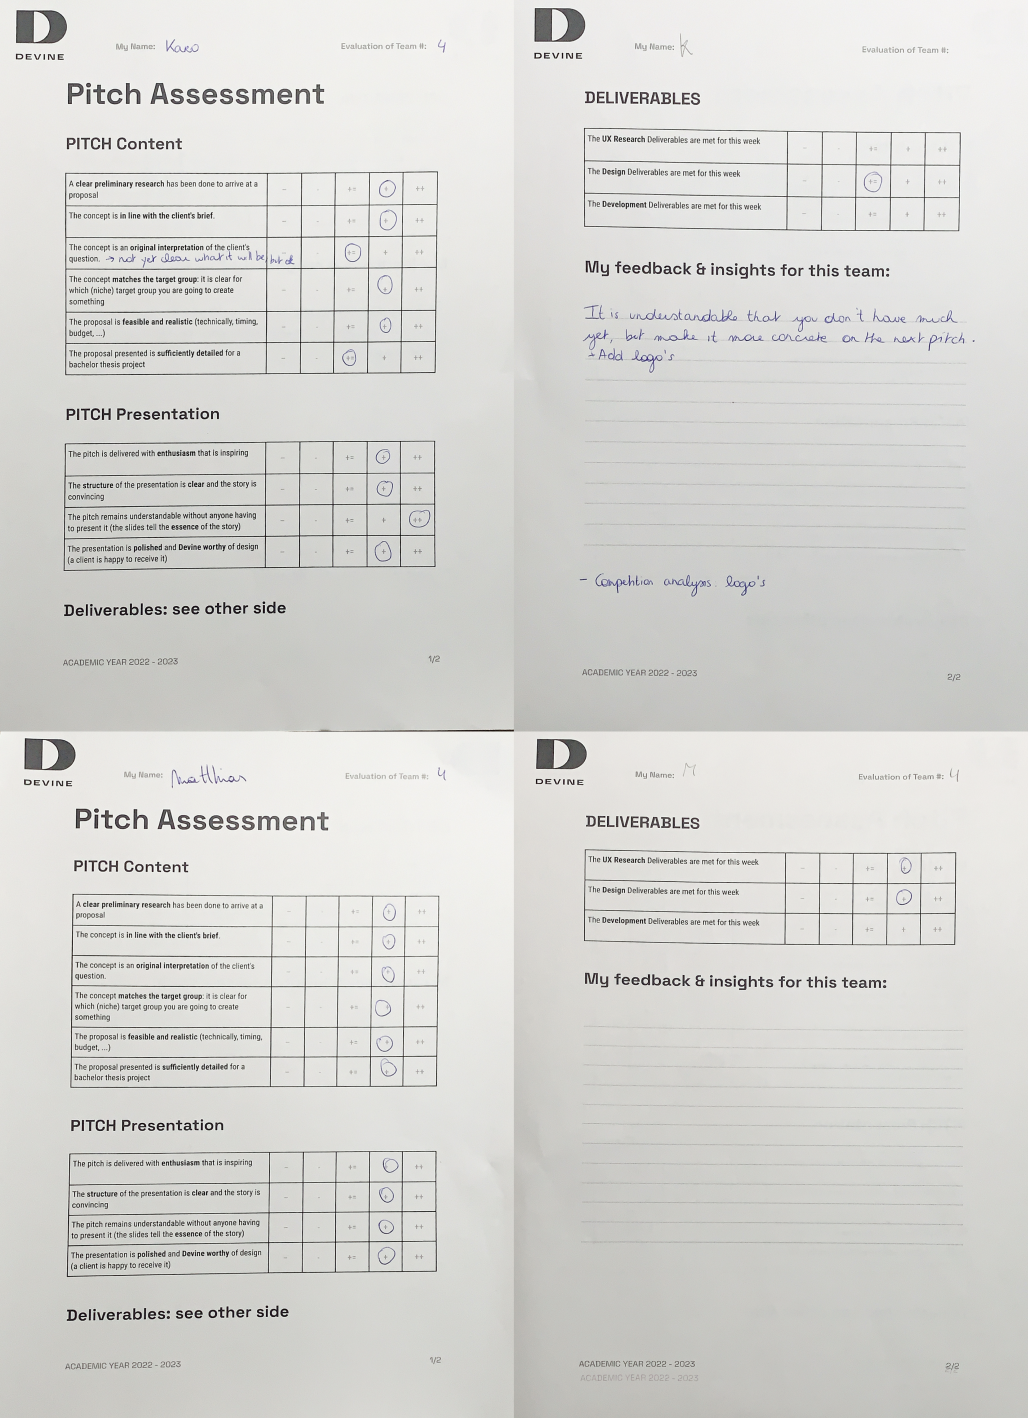 DEVINE
My Name: Karo
Evaluation of Team #: 4
Pitch Assessment
PITCH Content
A clear preliminary research has been done to arrive at a
proposal
-- - +- + ++
The concept is in line with the client's brief.
-- - +- + ++
The concept is an original interpretation of the client's
question. → not yet clear what it will be, but ok
-- - +- + ++
The concept matches the target group: it is clear for
which (niche) target group you are going to create
something
-- - +- + ++
The proposal is feasible and realistic (technically, timing,
budget, ...)
-- - +- + ++
The proposal presented is sufficiently detailed for a
bachelor thesis project
-- - +- + ++
PITCH Presentation
The pitch is delivered with enthusiasm that is inspiring
-- - +- + ++
The structure of the presentation is clear and the story is
convincing
-- - +- + ++
The pitch remains understandable without anyone having
to present it (the slides tell the essence of the story)
-- - +- + ++
The presentation is polished and Devine worthy of design
(a client is happy to receive it)
-- - +- + ++
Deliverables: see other side
ACADEMIC YEAR 2022 - 2023
1/2
DEVINE
My Name: K
Evaluation of Team #:
DELIVERABLES
The UX Research Deliverables are met for this week
-- - +- + ++
The Design Deliverables are met for this week
-- - +- + ++
The Development Deliverables are met for this week
-- - +- + ++
My feedback & insights for this team:
It is understandable that you don't have much
yet, but make it more concrete on the next pitch.
- Add logo's
- Competition analyses. logo's
ACADEMIC YEAR 2022 - 2023
2/2
DEVINE
My Name: Matthias
Evaluation of Team #: 4
Pitch Assessment
PITCH Content
A clear preliminary research has been done to arrive at a
proposal
-- - +- + ++
The concept is in line with the client's brief.
-- - +- + ++
The concept is an original interpretation of the client's
question.
-- - +- + ++
The concept matches the target group: it is clear for
which (niche) target group you are going to create
something
-- - +- + ++
The proposal is feasible and realistic (technically, timing,
budget, ...)
-- - +- + ++
The proposal presented is sufficiently detailed for a
bachelor thesis project
-- - +- + ++
PITCH Presentation
The pitch is delivered with enthusiasm that is inspiring
-- - +- + ++
The structure of the presentation is clear and the story is
convincing
-- - +- + ++
The pitch remains understandable without anyone having
to present it (the slides tell the essence of the story)
-- - +- + ++
The presentation is polished and Devine worthy of design
(a client is happy to receive it)
-- - +- + ++
Deliverables: see other side
ACADEMIC YEAR 2022 - 2023
1/2
DEVINE
My Name: M
Evaluation of Team #: 4
DELIVERABLES
The UX Research Deliverables are met for this week
-- - +- + ++
The Design Deliverables are met for this week
-- - +- + ++
The Development Deliverables are met for this week
-- - +- + ++
My feedback & insights for this team:
ACADEMIC YEAR 2022 - 2023
2/2
ACADEMIC YEAR 2022 - 2023